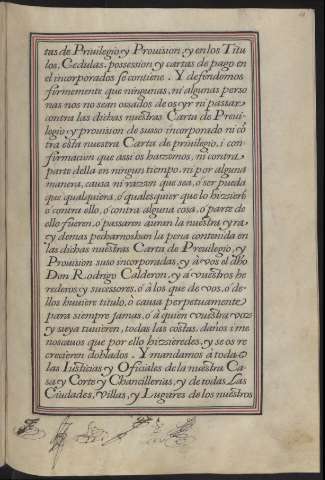 tas de Priuilegio, y Prouision, y en los Titu
los, Cedulas, possession, y cartas de pago en
el incorporados se contiene. Y defendemos
firmemente que ningunas, ni algunas perso
nas nos no sean ossados de os yr ni passar
contra las dichas nuestras Carta de Preui-
legio, y prouision de susso incorporado ni cõ
tra esta nuestra Carta de priuilegio, i con-
firmacion que assi os hazemos, ni contra
parte della en ningun tiempo, ni por alguna
manera, causa ni razon que sea, ó ser pueda
que qualquiera, ó qualesquier que lo hizsierē
ó contra ello, ó contra alguna cosa, ó parte de
ello fueren, ó passaren auran la nuestra yra,
y demas pecharnoshan la pena contenida en
las dichas nuestras Carta de Preuilegio, y
Prouision suso incorporadas, y á vos el dho
Don Rodrigo Calderon, y á vuestros he
rederos, y sucessores, ó á los que de vos, ó de-
llos huuiere titulo, ó causa perpetuamente
para siempre jamas, ó á quien vuestra voz
y suya tuuieren, todas las costas, daños i me
noscauos que por ello hizsieredes, y se os re
crecieren doblados. Y mandamos á todas
las Iusticias, y Oficiales de la nuestra Ca-
sa, y Corte y Chancillerias, y de todas Las
Ciudades, Villas, y Lugares de los nuestros